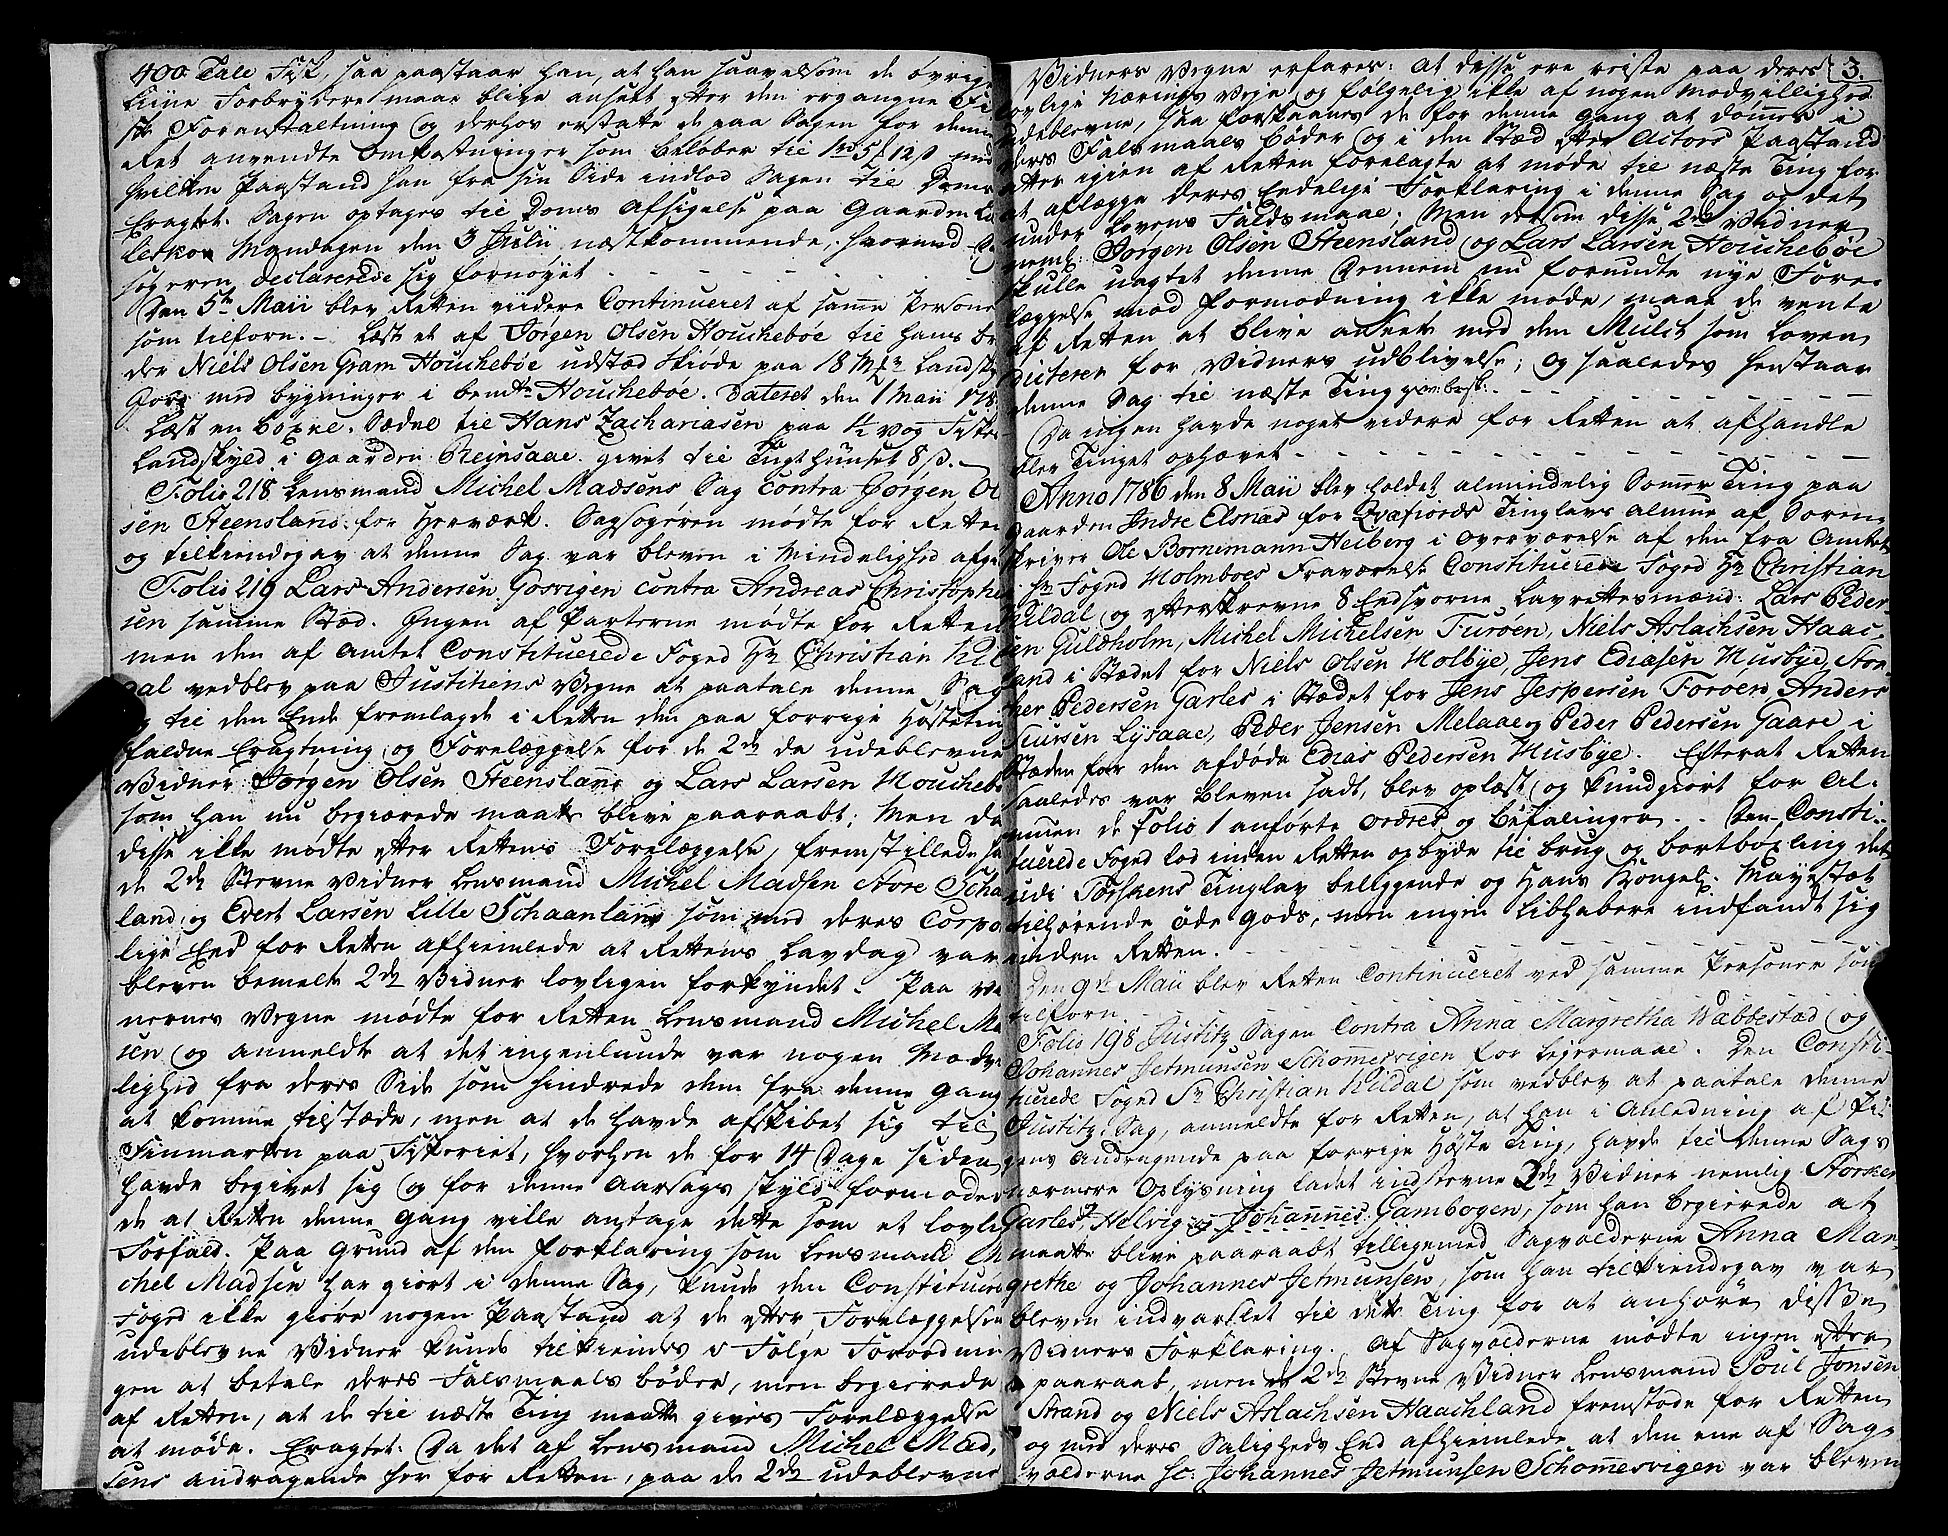 400 Tale Fisk, saa paastaar han, at han saavelsom de øvrige
Liine Forbrydere maae blive ansett efter den ergangne Fi-
ske Foranstaltning og derhos erstatte de paa Sagen for denne
Ret anvendte Omkostninger som beløber til 1 rd 5 12 s med
hvilken Paastand han fra sin Side indlod Sagen til Doms
Eragtet. Sagen optages til Doms Afsigelse paa Gaarden
Mandagen den 3 Julii næstkommende, hvormed
søgeren declarerede sig fornøyet
Den 5te Maii blev Retten viidere Continueret af samme Personer
som tilforn. Læst et af Jørgen Olsen Houchebøe til hans Br
der Niels Olsen Gram Houchebøe udstæd Skiøde paa 18 Landsk
Jord med bygninger i bemte Houchebøe. Dateret den 1 Maii 178
Læst en Boxne Sædne til Hans Zachariasen paa ½ Vog Fiskes
Landskyld i Gaarden Reinsaae. givet til Tugthuuset 8 s.
Folio 218 Lensmand Michel Madsens Sag contra Jørgen Ol
sen Steensland for Herværk. Sagsøgeren mødte for Retten
og tilkiendegav at denne Sag var bleven i Mindelighed afg
Folio 219 Lars Andersen Gosvigen contra Andreas Christophe
sen samme Stæd. Ingen af Parterne mødte for Retten
men den af Amtet Constituerede Foged Hr Christian Kil
dal vedblev paa Justitiens Vegne at paatale denne Sag
og til den Ende fremlagde i Retten den paa forrige Høsteting
faldne Eragtning og Forelæggelse for de 2de da udeblevne
Vidner Jørgen Olsen Steensland og Lars Larsen Houcheb
som han nu begiærede maatte blive paaraabt; Men da
disse ikke mødte efter Rettens Forelæggelse, fremstillede h
de 2de Stevne Vidner Lensmand Michel Madsen Store Scha
land og Edert Larsen Lille Schaanland som med deres Corpo
lige Eed for Retten afhiemlede at Rettens Lavdag var
bleven bemelte 2de Vidner lovligen forkyndet. Paa Vi
nernes Vegne mødte for Retten Lensmand Michel Ma
sen og anmeldte at det ingenlunde var nogen Modvi
lighed fra deres Side som hindrede dem fra denne Gang
at komme tilstæde, men at de havde afskibet sig til
Finmarken paa Fiskeriet, hvorhen de for 14 Dage siden
havde begivet sig og for denne Aarsags skyld formoded
de at Retten denne Gang ville antage dette som et lovli
Forfald. Paa Grund af den Forklaring som Lensmand Mi
chel Madsen har giort i denne Sag, kunde den Constitue
Foged ikke giøre nogen Paastand at de efter Forelæggelsen
udeblevne Vidner kunde tilkiendes i Følge Forordnin
gen at betale deres Falsmaals bøder, men begierede
af Retten, at de til næste Ting maatte gives Forelæggelse
at møde. Eragtet: Da det af Lensmand Michel Mad-
sens andragende her for Retten, paa de 2de udeblevne
3.
Vidners Vegne erfares: At disse ere reiste paa deres
lovlige Nærings Veye og følgelig ikke af nogen modvillighed
udeblevne, saa forskaanes de for denne gang at dømmes i
deres Falsmaals bøder og i den Stæd efter Actors Paastand
atter igien af Retten forelagte at møde til næste Ting for
at aflægge deres Endelige Forklaring i denne Sag og det
under Lovens Faldsmaal; Men dersom disse 2de Vidner
neml: Jørgen Olsen Steensland og Lars Larsen Houchebøe
skulle uagtet denne Dennem nu forundte nye Fore-
læggelse mod Formodning ikke møde, maae de vente
af Retten at blive ansete med den Mulct som Loven
dicterer for Vidners udblivelse; og saaledes henstaar
denne Sag til næste Ting
Da ingen havde noget videre for Retten at afhandle
blev Tinget ophævet
Anno 1786 den 8 Maii blev holdet almindelig Sommer Ting paa
Gaarden Indre Elsnæs for Qvæfiords Tinglavs Almue af Soren-
skriver Ole Bornemann Heiberg i overværelse af den fra Amtet
i Hr Foged Holmboes Fraværelse Constituerede Foged Hr Christian
Kildal og efterskrevne 8 Eedsvorne Lavrettesmænd: Lars Peder-
sen Guldholm, Michel Michelsen Furøen, Niels Aslachsen Haac-
land i Stædet for Niels Olsen Molbye, Jens Ediasen Husbye, Stor-
cher Pedersen Garles i Stædet for Jens Jespersen Forøen, Anders
Siursen Lysaae, Peder Jensen Melaae og Peder Pedersen Gaare i
Stæden for den afdøde Edias Pedersen Husbye. Efterat Retten
saaledes var bleven sadt, blev oplæst og kundgiort for Al-
muen de Folio 1 anførte ordres og befalinger. Den Consti-
tuerede Foged lod inden Retten opbyde til brug og bortbøxling det
udi Torskens Tinglav beliggende og Hans Kongel. Mayestæt
tilhørende Øde Gods, men ingen Liebhabere indfandt sig
inden Retten.
Den 9de Maii blev Retten Continueret ved samme Personer som
tilforn.
Folio 198 Justitz Sagen Contra Anna Margretha Wabbestad og
Johannes Jetmunsen Schommesvigen for Leyermaal. Den Consti-
tuerede Foged Sr Christian Kildal som vedblev at paatale denne
Justitz Sag, anmeldte for Retten, at han i Anledning af Pi-
gens Andragende paa forrige Høste Ting, havde til denne Sags
nærmere Oplysning ladet indstevne 2de Vidner nemlig Storker
Garles, Helvig og Johannes Gambogen, som han begierede at
maatte blive paaraabt tilligemed Sagvolderne Anna Mar-
grethe og Johannes Jetmunsen, som han tilkiendegav var
bleven indvarslet til dette Ting for at anhøre disse
Vidners Forklaring. Af Sagvolderne mødte ingen efter
paaraab, men de 2de Stevne Vidner Lensmand Poul Jonsen
Strand og Niels Aslachsen Haachland fremstode for Retten
og med deres Saligheds Eed afhiemlede at den ene af Sag-
volderne sc: Johannes Jetmunsen Schommesvigen var bleven